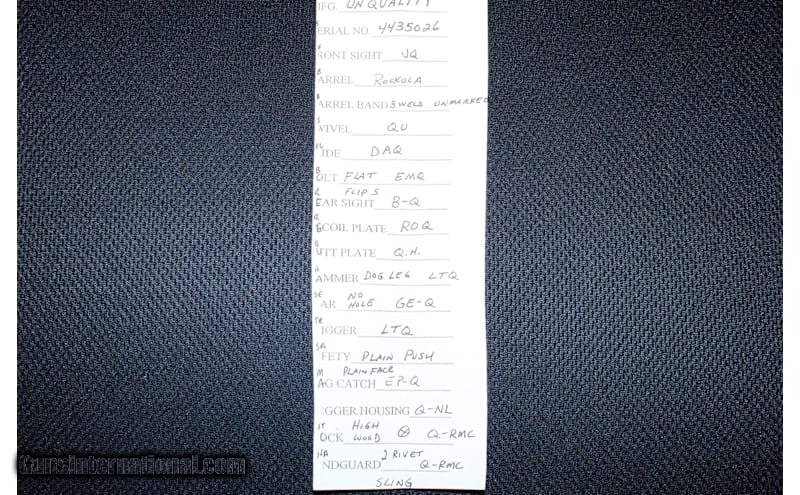 MFG. UN QUALITY
SERIAL NO. 4435026
FRONT SIGHT JQ
BARREL ROCKOLA
BARREL BAND 3 WELD UNMARKED
SWIVEL QU
SLIDE DAQ
BOLT FLAT EMQ
REAR SIGHT FLIP S B-Q
RECOIL PLATE ROQ
BUTT PLATE Q.H.
HAMMER DOG LEG LTQ
SEAR NO HOLE GE-Q
TRIGGER LTQ
SAFETY PLAIN PUSH
MAG CATCH PLAIN FACE EP-Q
IGGER HOUSING Q-NL
STOCK HIGH WOOD Q-RMC
HANDGUARD 2 RIVET Q-RMC
SLING
GunsInternational.com